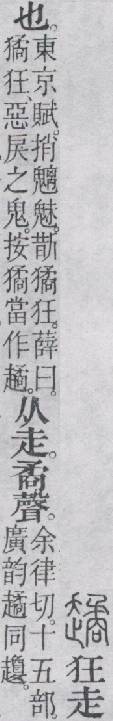 𧽻 狂走
也。東京賦。捎魑魅。斮獝狂。薛曰。
獝狂、惡戾之鬼。按獝當作𧽻。
从走。矞聲。余律切。十五部。
廣韵𧽻同